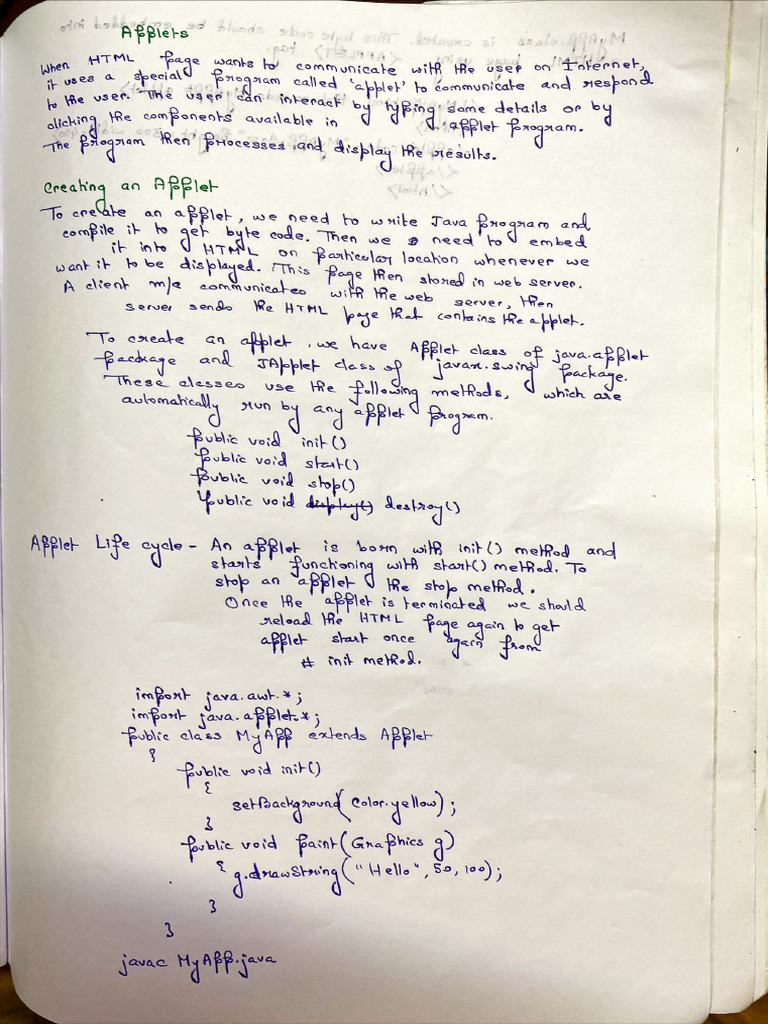 Applets
When HTML page wants to communicate with the user on Internet,
it uses a special program called 'applet' to communicate and respond
to the user. The user can interact by typing some details or by
clicking the components available in applet program.
The program then processes and display the results.
Creating an Applet
To create an applet, we need to write Java program and
compile it to get byte code. Then we need to embed
it into HTML on particular location whenever we
want it to be displayed. This page then stored in web server.
A client m/c communicates with the web server, then
server sends the HTML page that contains the applet.
To create an applet, we have Applet class of java.applet
package and JApplet class of javax.swing package.
These classes use the following methods, which are
automatically run by any applet program.
public void init()
public void start()
public void stop()
public void display() destroy()
Applet Life cycle - An applet is born with init() method and
starts functioning with start() method. To
stop an applet the stop method.
Once the applet is terminated we should
reload the HTML page again to get
applet start once again from
# init method.
import java.awt.*;
import java.applet.*;
public class MyApp extends Applet
{
public void init()
{
setBackground(Color.yellow);
}
public void paint(Graphics g)
{ g.drawString("Hello", 50, 100);
}
}
javac MyApp.java